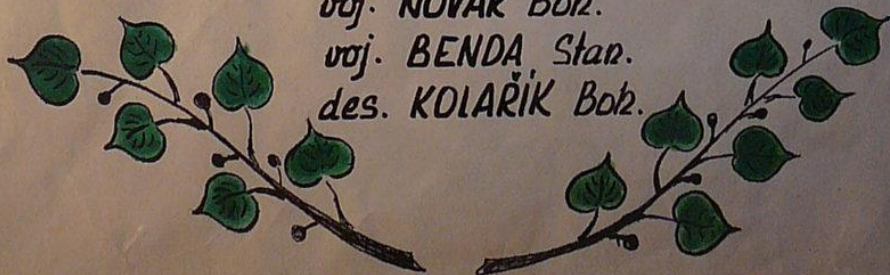 voj. NOVÁK Boh.
voj. BENDA Stan.
des. KOLAŘÍK Boh.